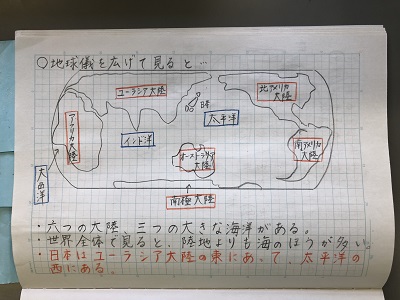 ○地球儀を広げて見ると…
ユーラシア大陸
北アメリカ大陸
日本
太平洋
アフリカ大陸
インド洋
オーストラリア大陸
南アメリカ大陸
大西洋
南極大陸
・六つの大陸、三つの大きな海洋がある。
・世界全体で見ると、陸地よりも海のほうが多い。
・日本はユーラシア大陸の東にあって、太平洋の
西にある。